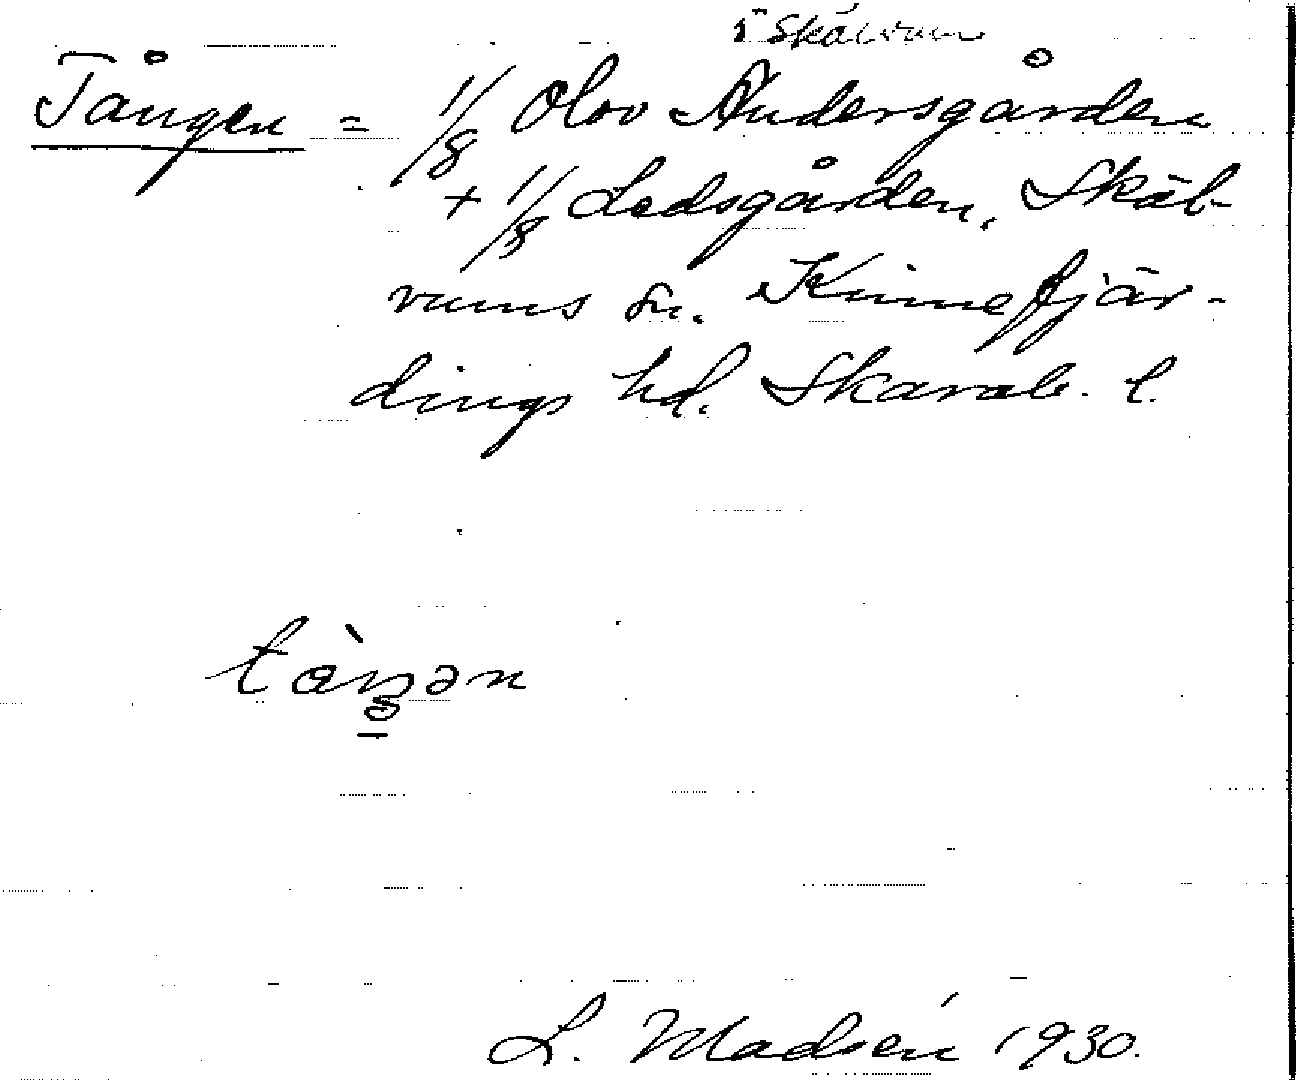 i Skälvum
Tången = 1/8 Olov Andersgården
+ 1/8 Ledsgården, Skäl-
vums sn. Kinnefjär-
dings hd. Skarab. l.
tàŋən
L. Madsén 1930.